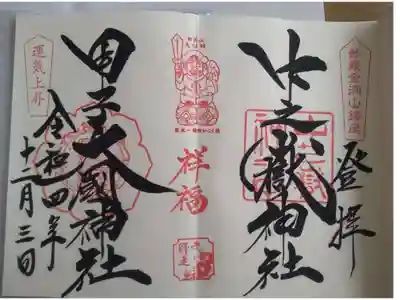 登拝
中之嶽神社
祥福
甲子大國神社
運気上昇
令和四年
十二月三日